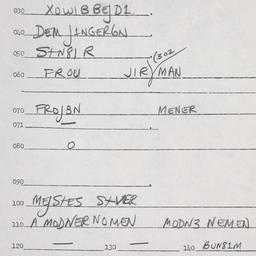 030 XOWIBBEJD1.
040 DEM JINGERGN
050 S+N8I R (302
060 FROU JIR) MAN
070 FROJBN MENER
071 —
080 O
090
100 MEJSTES S+VER
110 A MODNER NOMEN MODN3 NEMEN
120 — 130 — 140 BUN81M